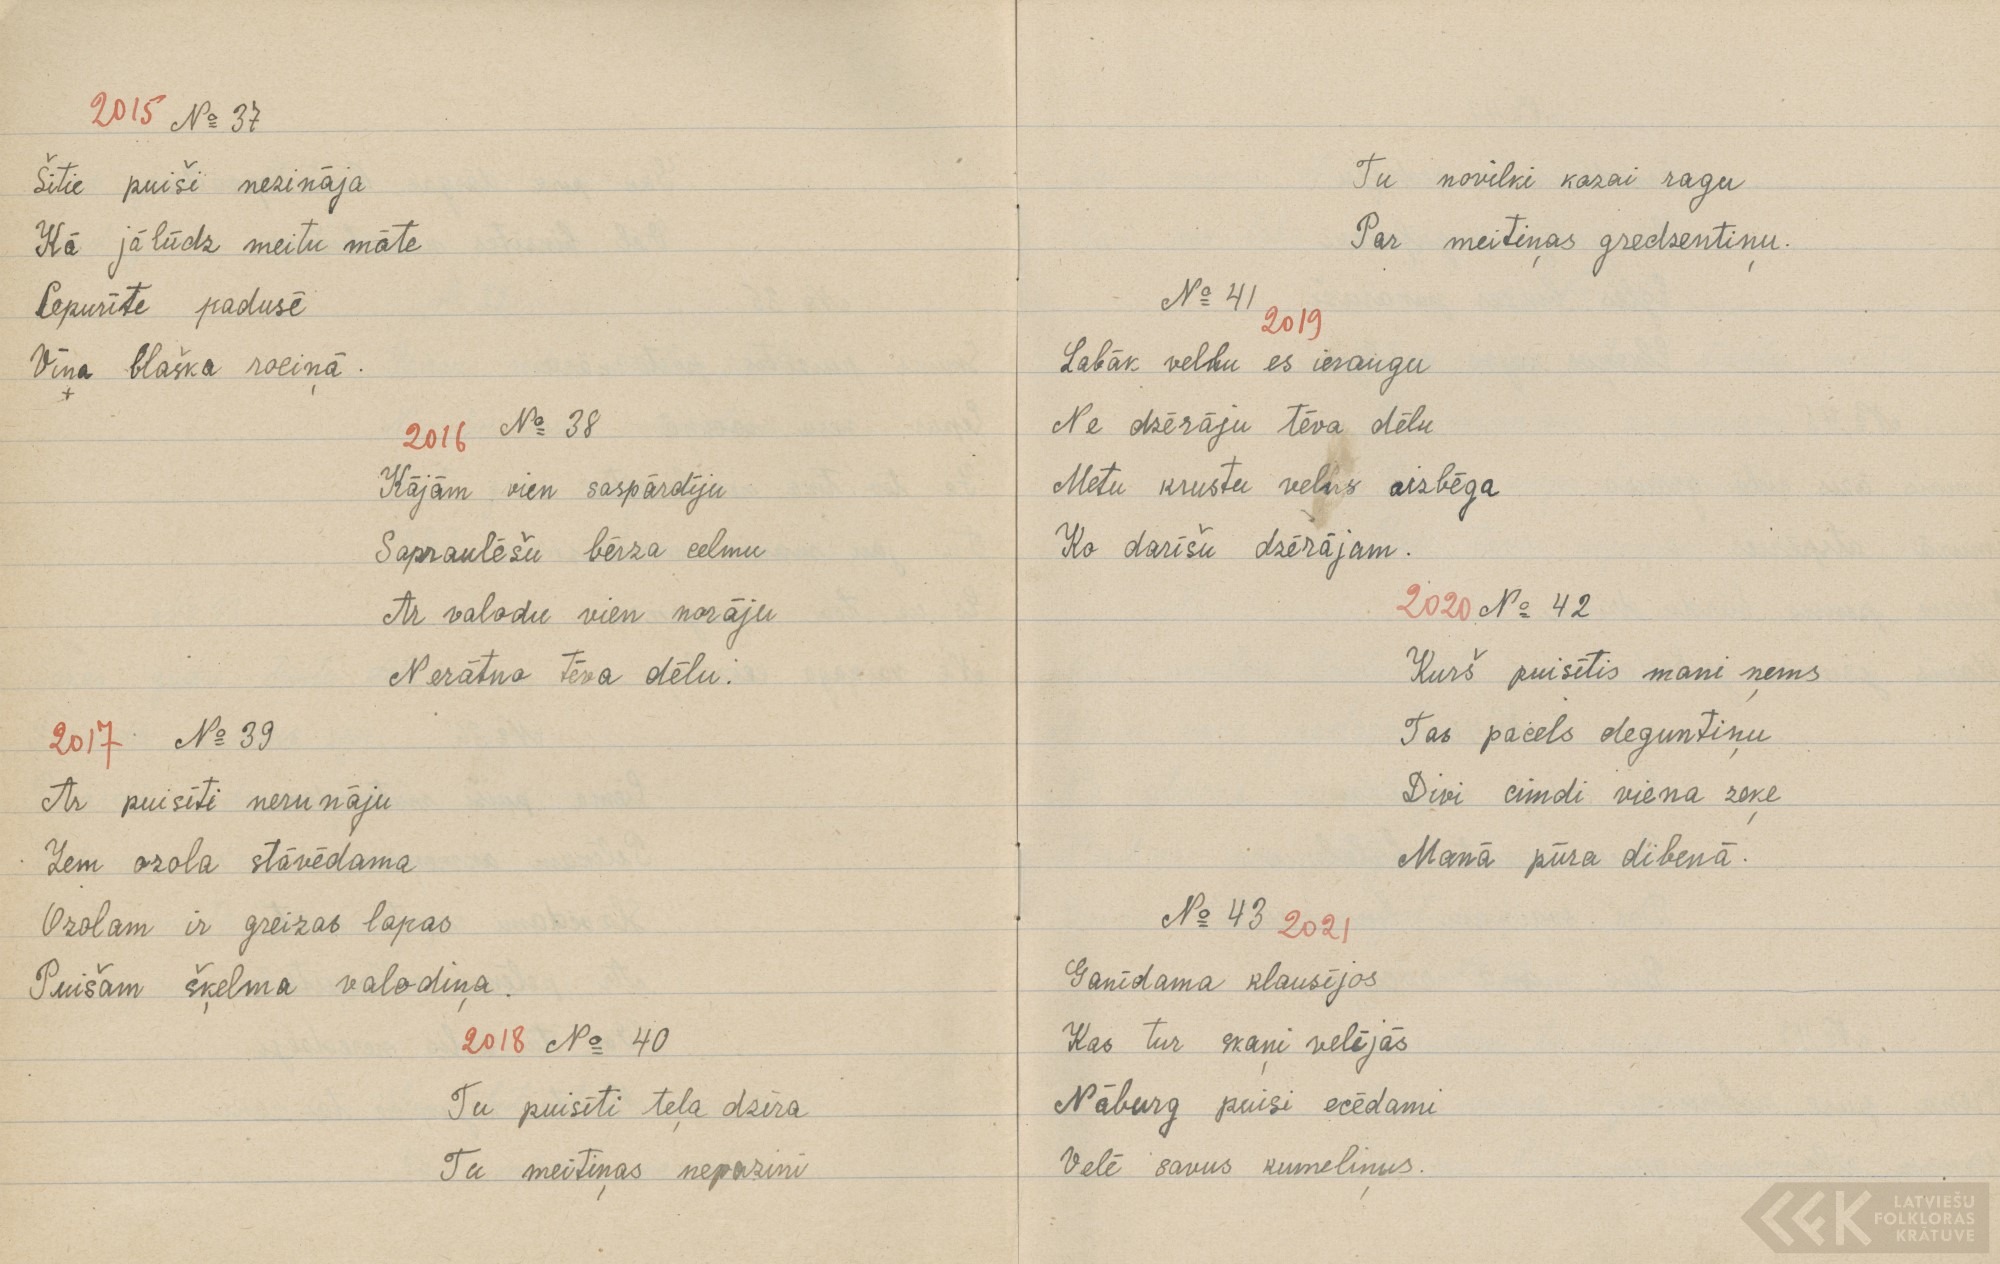 2015 No 37
Šitie puiši nezināja
Kā jālūdz meitu māte
Cepurīte padusē
Vīņa blaška rociņā.
2016 No 38
Kājām vien saspārdīju
Sapraulēšu bērza celmu
Ar valodu vien norāju
Nerātno tēva dēlu.
2017 No 39
Ar puisīti nerunāju
Zem ozola stāvēdama
Ozolam ir greizas lapas
Puišam šķelma valodiņa.
2018 No 40
Tu puisīti teļa dzīra
Tu meitiņas nepazini
Tu novilki kazai ragu
Par meitiņas gredzentiņu.
No 41 2019
Labāk velnu es ieraugu
Ne dzērāju tēva dēlu
Metu krustu velns aizbēga
Ko darīšu dzērājam.
2020 No 42
Kurš puisītis mani ņems
Tas pacels deguntiņu
Divi cimdi viena zeķe
Manā pūra dibenā.
No 43 2021
Ganīdama klausījos
Kas tur skaņi velējās
Nāburg puisi ecēdami
Velē savus kumeliņus.
LATVIEŠU
FOLKLORAS
KRĀTUVE